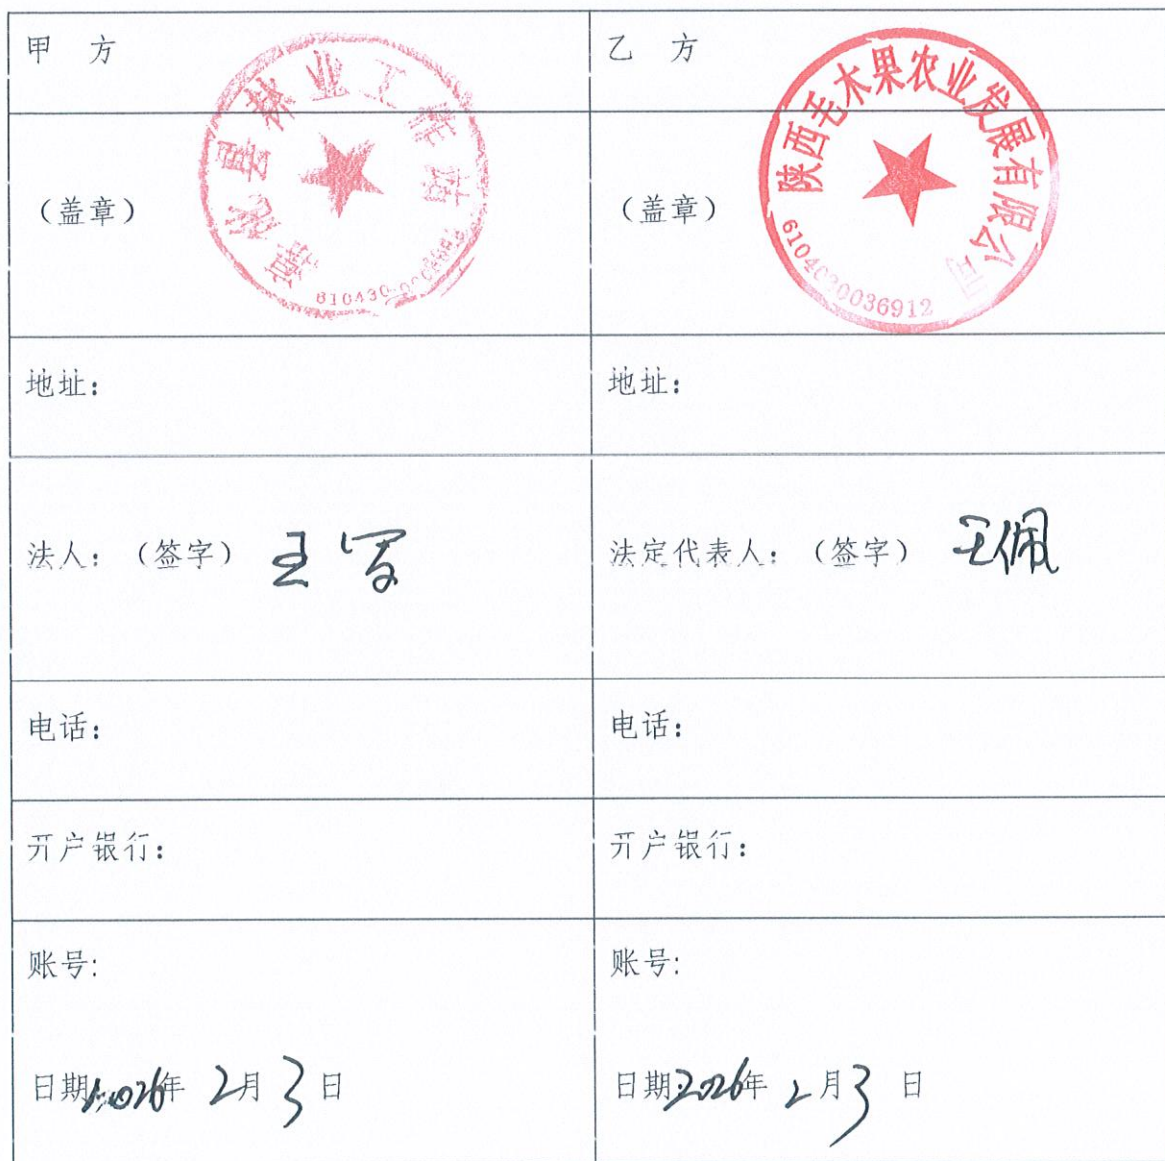 甲 方
乙 方
林业工作站
陕西毛木果农业发展有限公司
6104030036912
（盖章）
（盖章）
地址：
地址：
法人：（签字）王
法定代表人：（签字）王佩
电话：
电话：
开户银行：
开户银行：
账号:
账号:
日期:2026年 2月 3日
日期:2026年 2月 3日